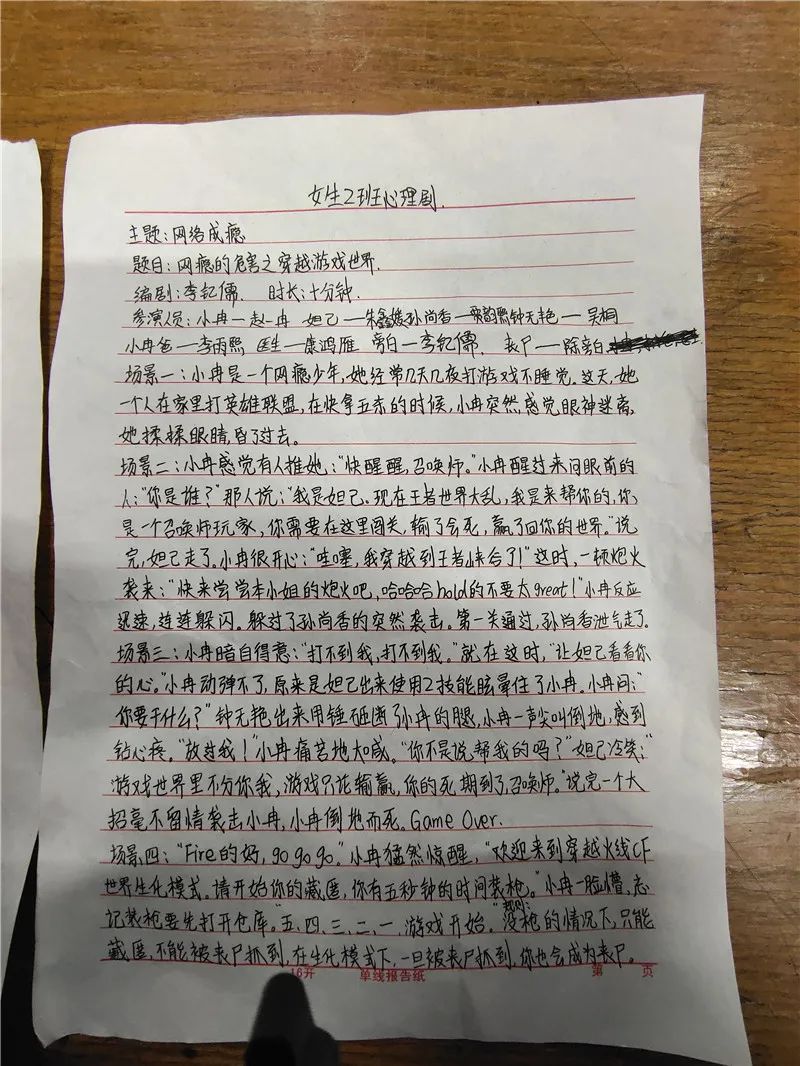 女生2班心理剧.
主题:网络成瘾
题目:网瘾的危害之穿越游戏世界.
编剧:李钇儒. 时长:十分钟.
参演人员:小冉—赵一冉 妲己—朱鑫媛 孙尚香— 钟无艳—吴桐
小冉爸—李雨熙 医生—康鸿雁 旁白—李钇儒. 丧尸—除旁白
场景一:小冉是一个网瘾少年,她经常几天几夜打游戏不睡觉.这天,她
一个人在家里打英雄联盟,在快拿五杀的时候,小冉突然感觉眼神迷离,
她揉揉眼睛,昏了过去。
场景二:小冉感觉有人推她,:“快醒醒,召唤师。”小冉醒过来问眼前的
人:“你是谁?”那人说:“我是妲己.现在王者世界大乱,我是来帮你的.你
是一个召唤师玩家,你需要在这里闯关,输了会死,赢了回你的世界。”说
完,妲己走了.小冉很开心:“哇塞,我穿越到王者快合了!”这时,一顿炮火
袭来:“快来尝尝本小姐的炮火吧,哈哈哈hold的不要太great!”小冉反应
迅速,连连躲闪。躲过了孙尚香的突然袭击。第一关通过,孙尚香泄气走了.
场景三:小冉暗自得意:“打不到我,打不到我。”就在这时,“让妲己看看你
的心。”小冉动弹不了,原来是妲己出来使用2技能眩晕住了小冉.小冉问:“
你要干什么?”钟无艳出来用锤砸断了小冉的腿,小冉一声尖叫倒地,感到
钻心疼。“放过我!”小冉痛苦地大喊。“你不是说帮我的吗?”妲己冷笑:“
游戏世界里不分你我,游戏只论输赢,你的死期到了,召唤师。”说完一个大
招毫不留情袭击小冉,小冉倒地而死。Game Over.
场景四:“Fire的好,go go go.”小冉猛然惊醒,“欢迎来到穿越火线CF
世界生化模式.请开始你的藏匿,你有五秒钟的时间装枪。”小冉一脸懵,忘
记装枪要先打开仓库。“五、四、三、二、一.游戏开始。”规则:“没枪的情况下,只能
藏匿,不能被丧尸抓到,在生化模式下,一旦被丧尸抓到,你也会成为丧尸。
16开 单线报告纸 第 页